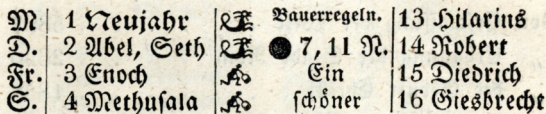 M 1 Neujahr Bauerregeln. 13 Hilarius
D. 2 Abel, Seth 7, 11 N. 14 Robert
Fr. 3 Enoch Ein 15 Diedrich
S. 4 Methusala schöner 16 Giesbrecht